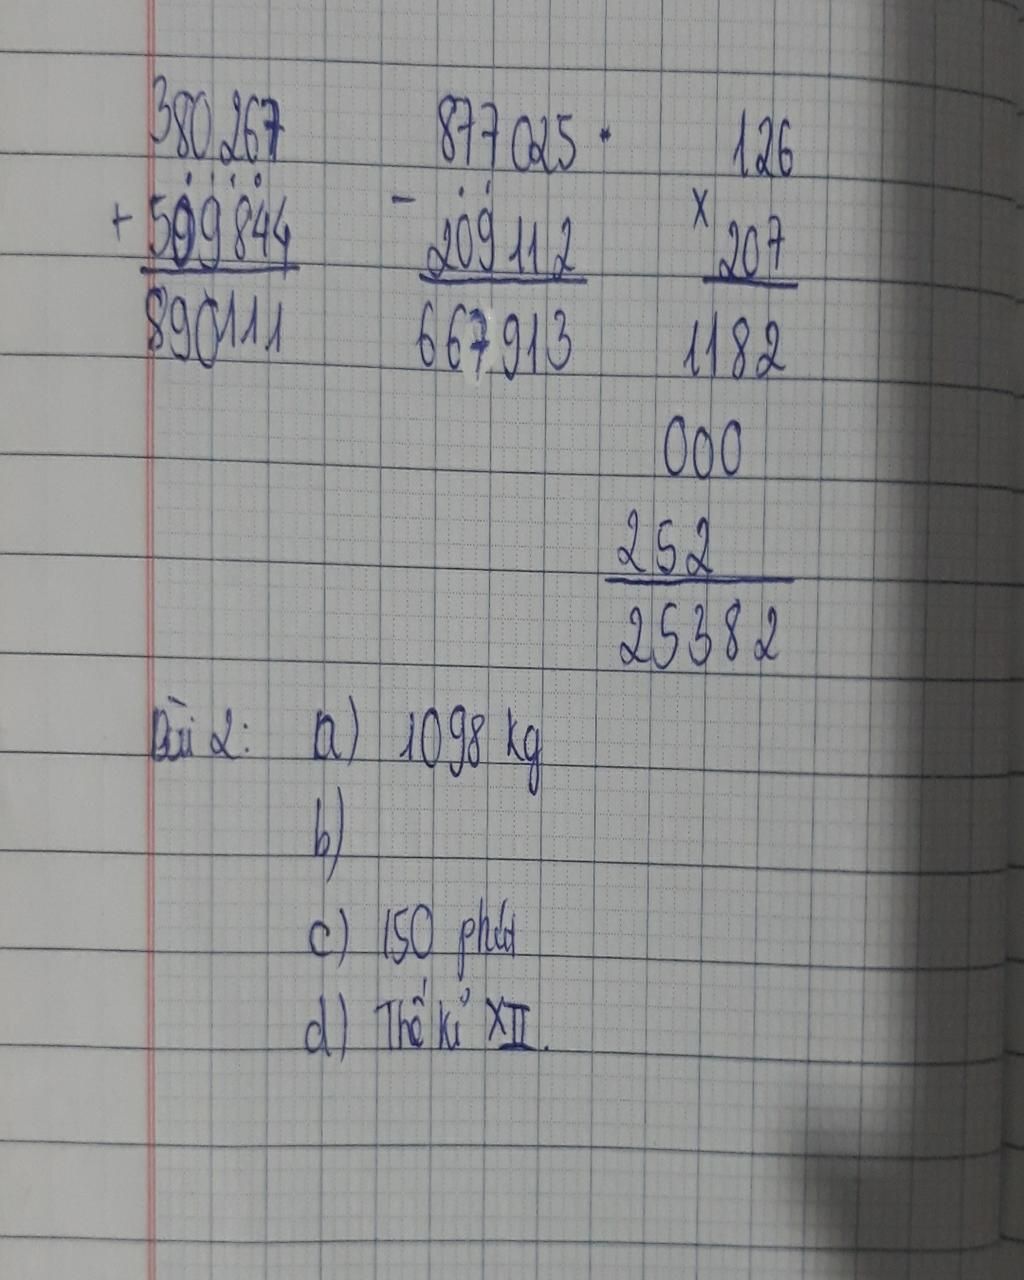 380267 877025 126
+ 509844 - 209112 x 207
890111 667913 1182
000
252
25382
Bài 2: a) 1098 kg
b)
c) 150 phút
d) Thế kỉ XII.